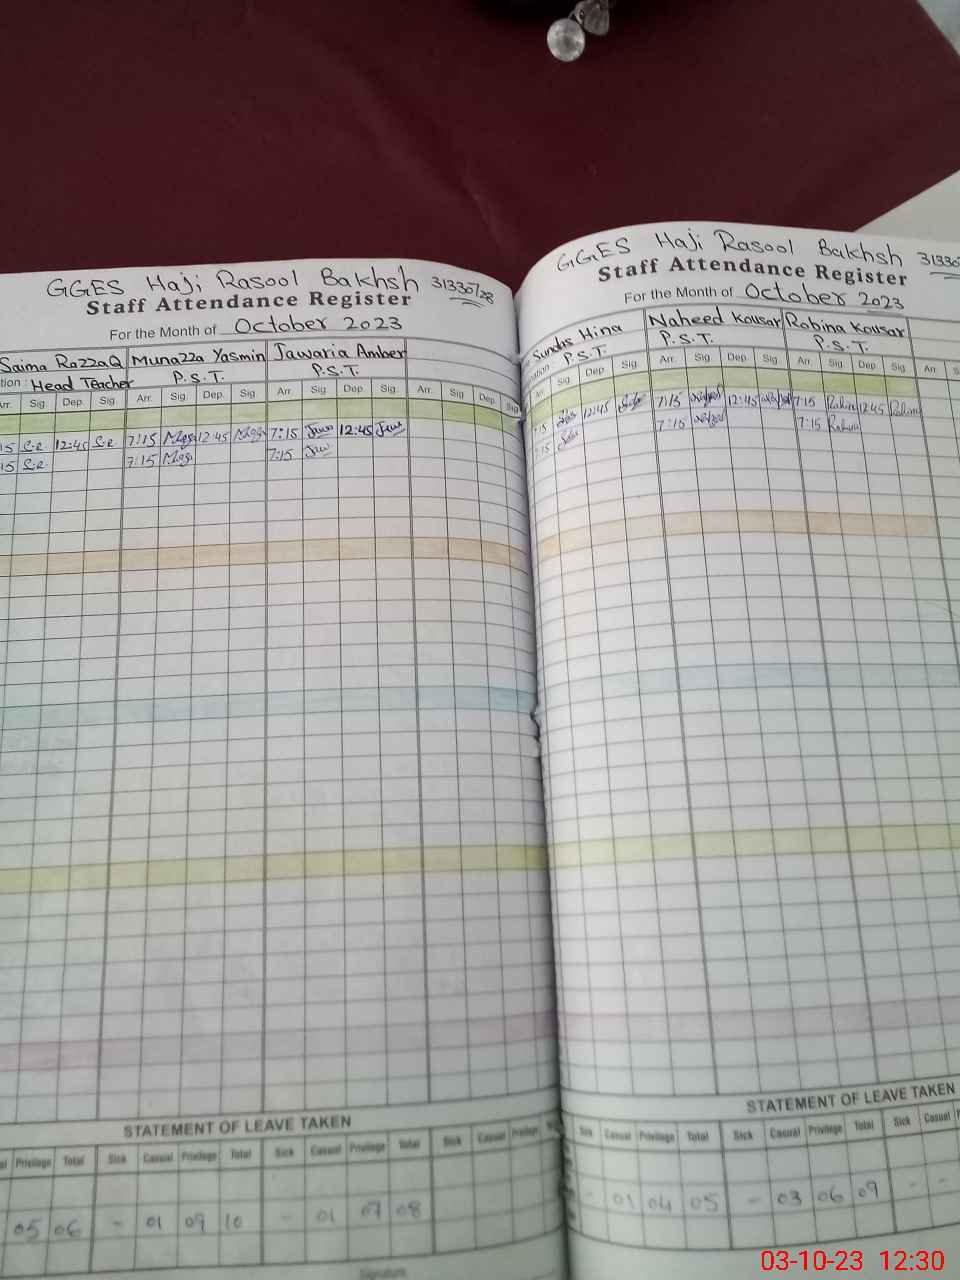 GGES Haji Rasool Bakhsh 31330728
Staff Attendance Register
For the Month of October 2023
Saima RazzaQ Munazza Yasmin Jawaria Amber
tion: Head Teacher P.S.T. P.S.T.
Arr. Sig. Dep. Sig. Arr. Sig. Dep. Sig. Arr. Sig. Dep. Sig. Arr. Sig. Dep. Sig
15 S.R 12:45 S.R 7:15 12:45 7:15 Jaw 12:45 Jaw
15 S.R 7:15 7:15 Jaw
STATEMENT OF LEAVE TAKEN
Privilege Total Sick Casual Privilege Total Sick Casual Privilege Total Sick Casual Privilege
05 06 - 01 09 10 - 01 07 08
Signature
GGES Haji Rasool Bakhsh 3133
Staff Attendance Register
For the Month of October 2023
Sundas Hina Naheed Kousar Robina Kousar
P.S.T. P.S.T. P.S.T.
Arr Sig. Dep. Sig. Arr. Sig. Dep. Sig. Arr. Sig. Dep. Sig. Arr S
:15 12:45 7:15 12:45 7:15 Robina 12:45 Robina
:15 7:15 7:15 Robina
STATEMENT OF LEAVE TAKEN
Sick Casual Privilege Total Sick Casual Privilege Total Sick Casual P
- 01 04 05 - 03 06 09 - -
03-10-23 12:30